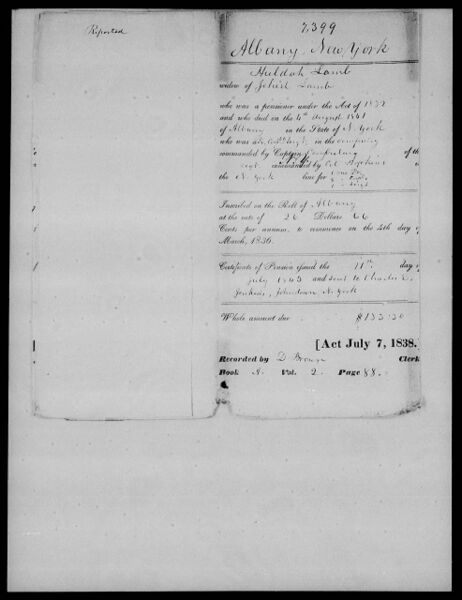 Reported
7,399
Albany New York
Huldah Lamb
widow of Lamb
who was a pensioner under the Act of 1832
and who died on the 4th August 1841
of Albany in the State of N. York
who was a in the company
commanded by Captain of the
regt commanded by Col Hopkins
the N. York line for 1 year
Inscribed on the Roll of Albany
at the rate of 26 Dollars 66
Cents per annum, to commence on the 4th day
March, 1836.
Certificate of Pension issued the 11th day
July 1843 and sent to Charles
Jenkins, Johnstown, N. York
Whole amount due $133.30
[Act July 7, 1838.]
Recorded by D. Brown Clerk
Book A. Vol. 2 Page 88.